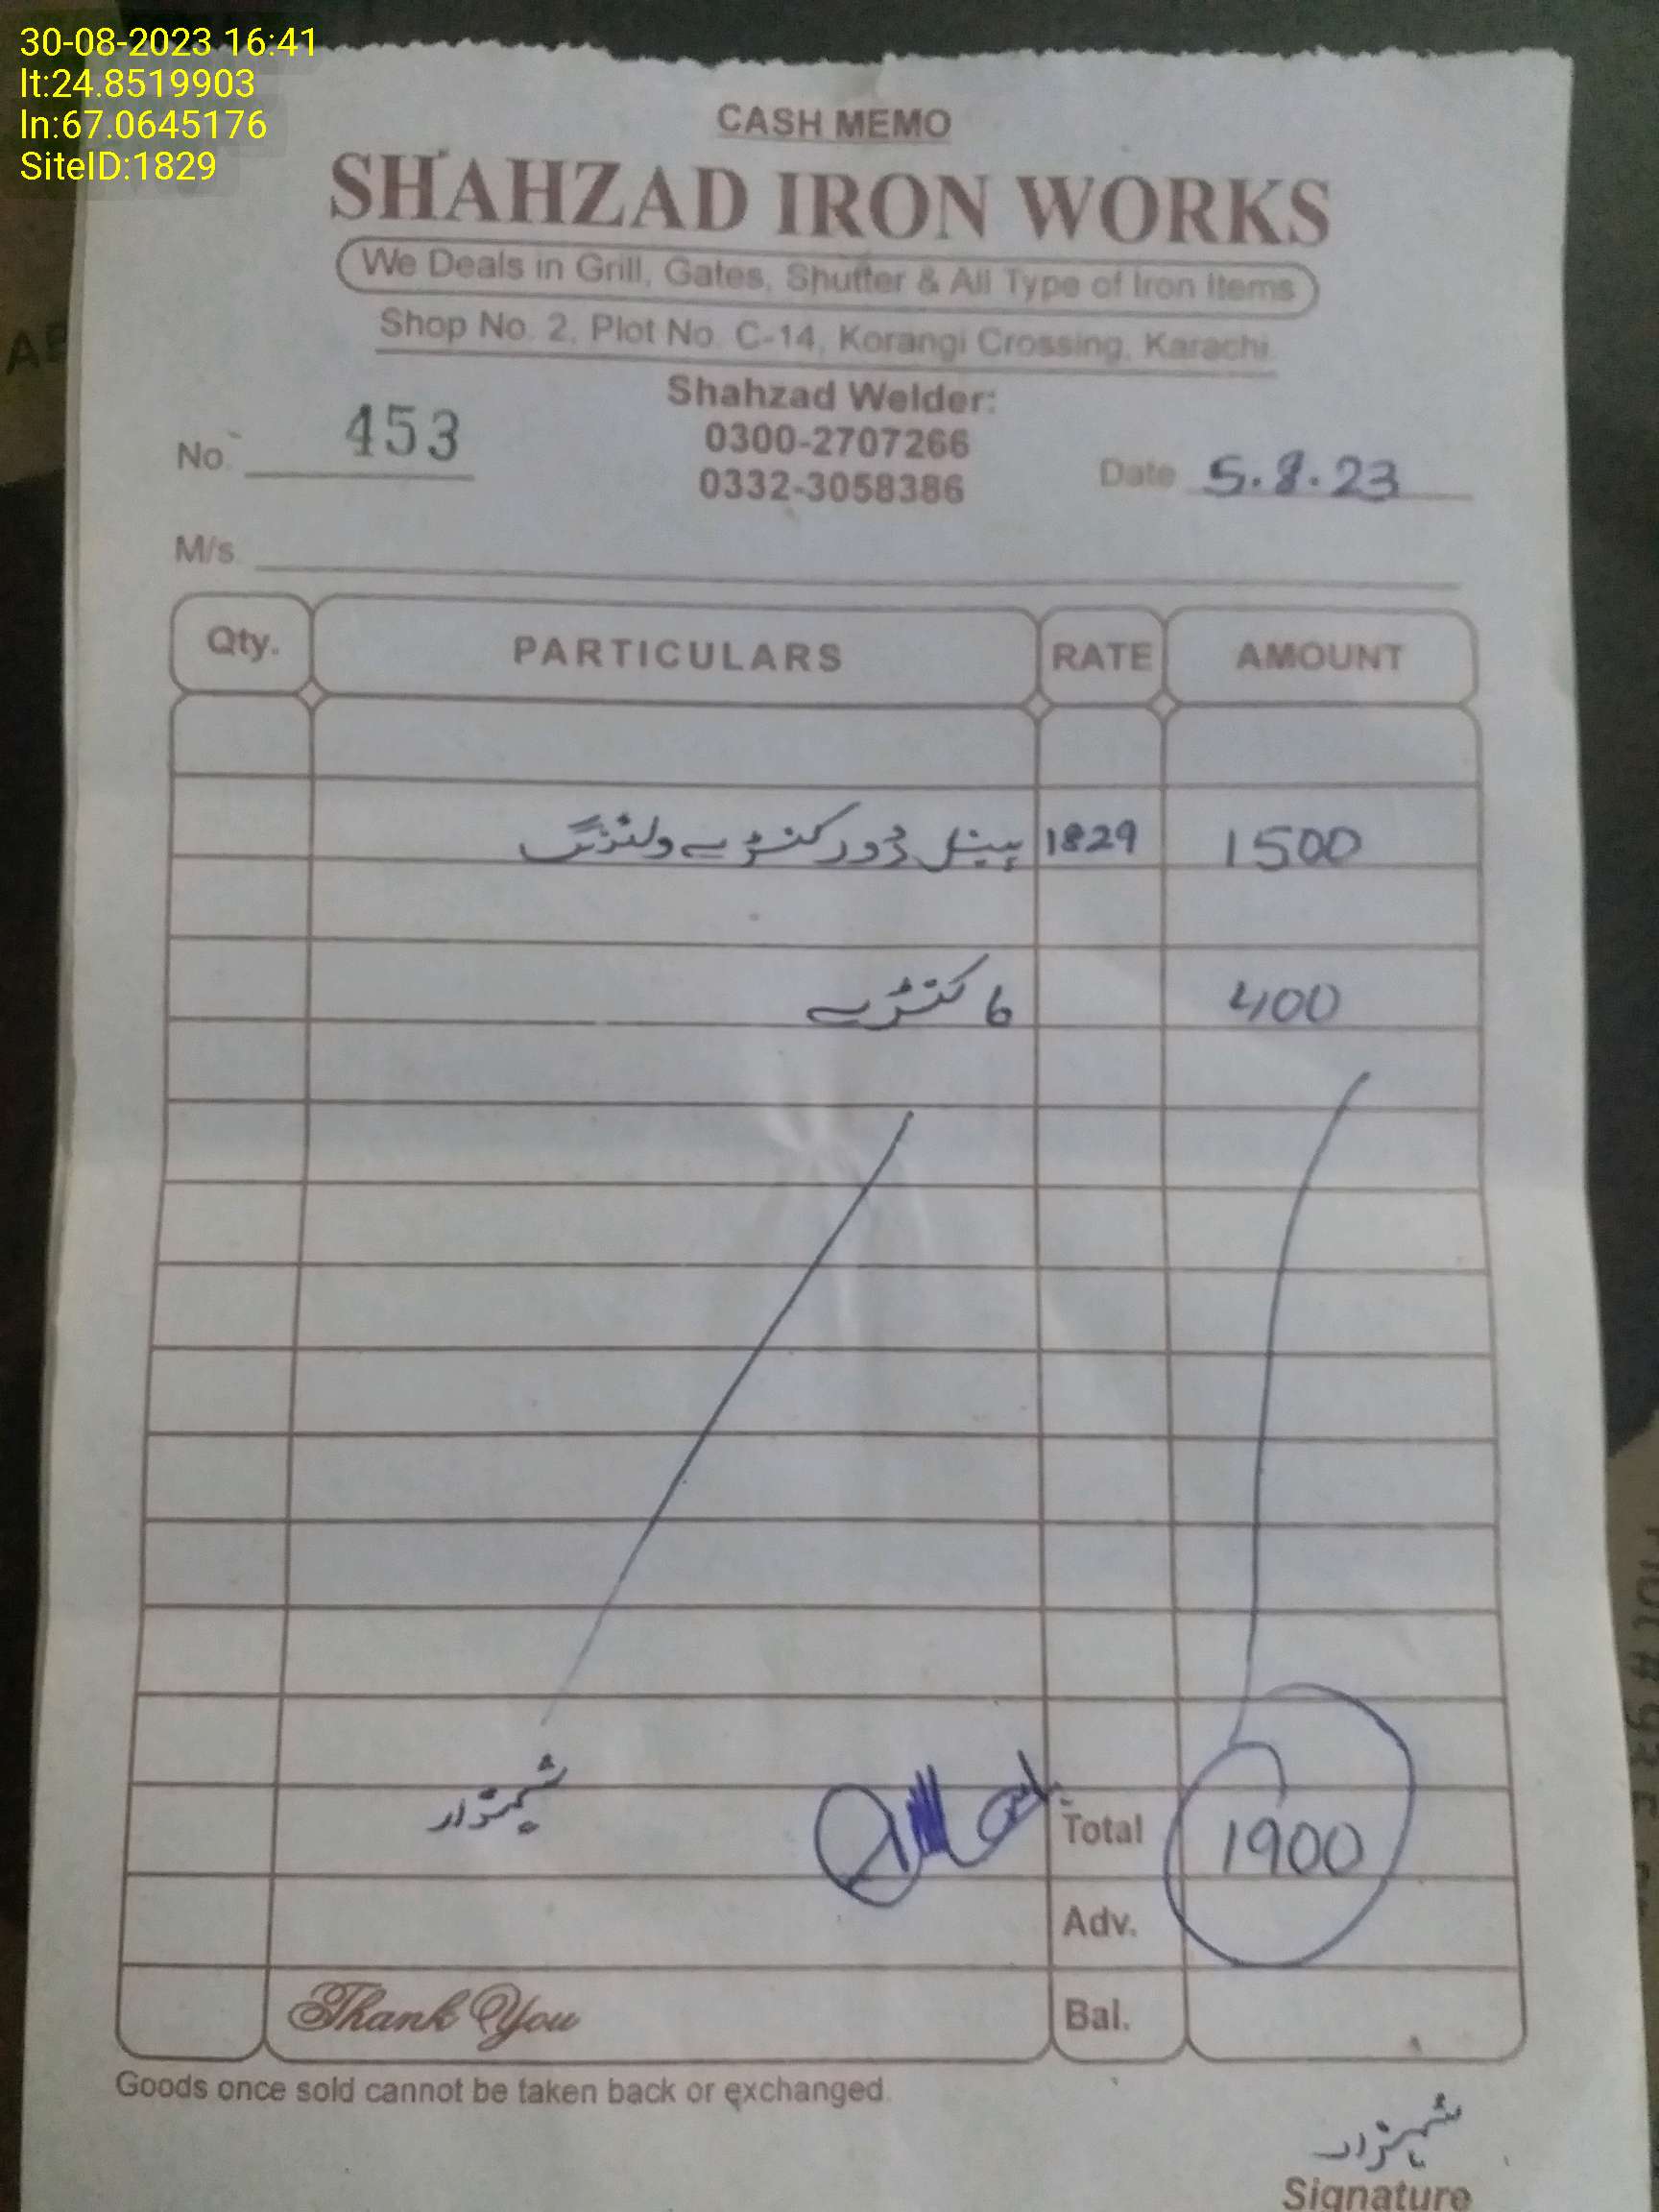 30-08-2023 16:41
lt:24.8519903
ln:67.0645176
SiteID:1829
CASH MEMO
SHAHZAD IRON WORKS
We Deals in Grill, Gates, Shutter & All Type of Iron Items
Shop No. 2, Plot No. C-14, Korangi Crossing, Karachi.
Shahzad Welder:
0300-2707266
0332-3058386
No. 453
Date 5.8.23
M/s.
Qty. PARTICULARS RATE AMOUNT
پینل ڈور کنڑے ولڈنگ 1829 1500
6 کنڑے 400
شہزاد
Total 1900
Adv.
Thank You Bal.
Goods once sold cannot be taken back or exchanged.
شہزاد
Signature